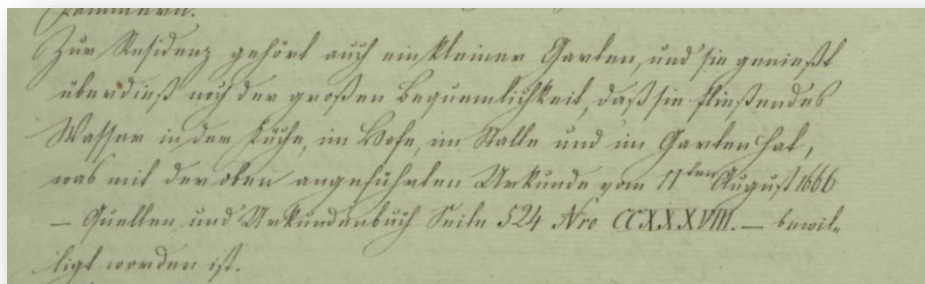 Zimmern.
Zur Residenz gehört auch ein kleiner Garten, und sie genießt
überdieß noch der großen Bequemlichkeit, daß sie fließendes
Wasser in der Küche, im Hofe, im Stalle und im Garten hat,
was mit der oben angeführten Urkunde vom 11ten August 1666
– Quellen und Urkundenbuch Seite 524 Nro CCXXXVIII. – bewil-
ligt worden ist.